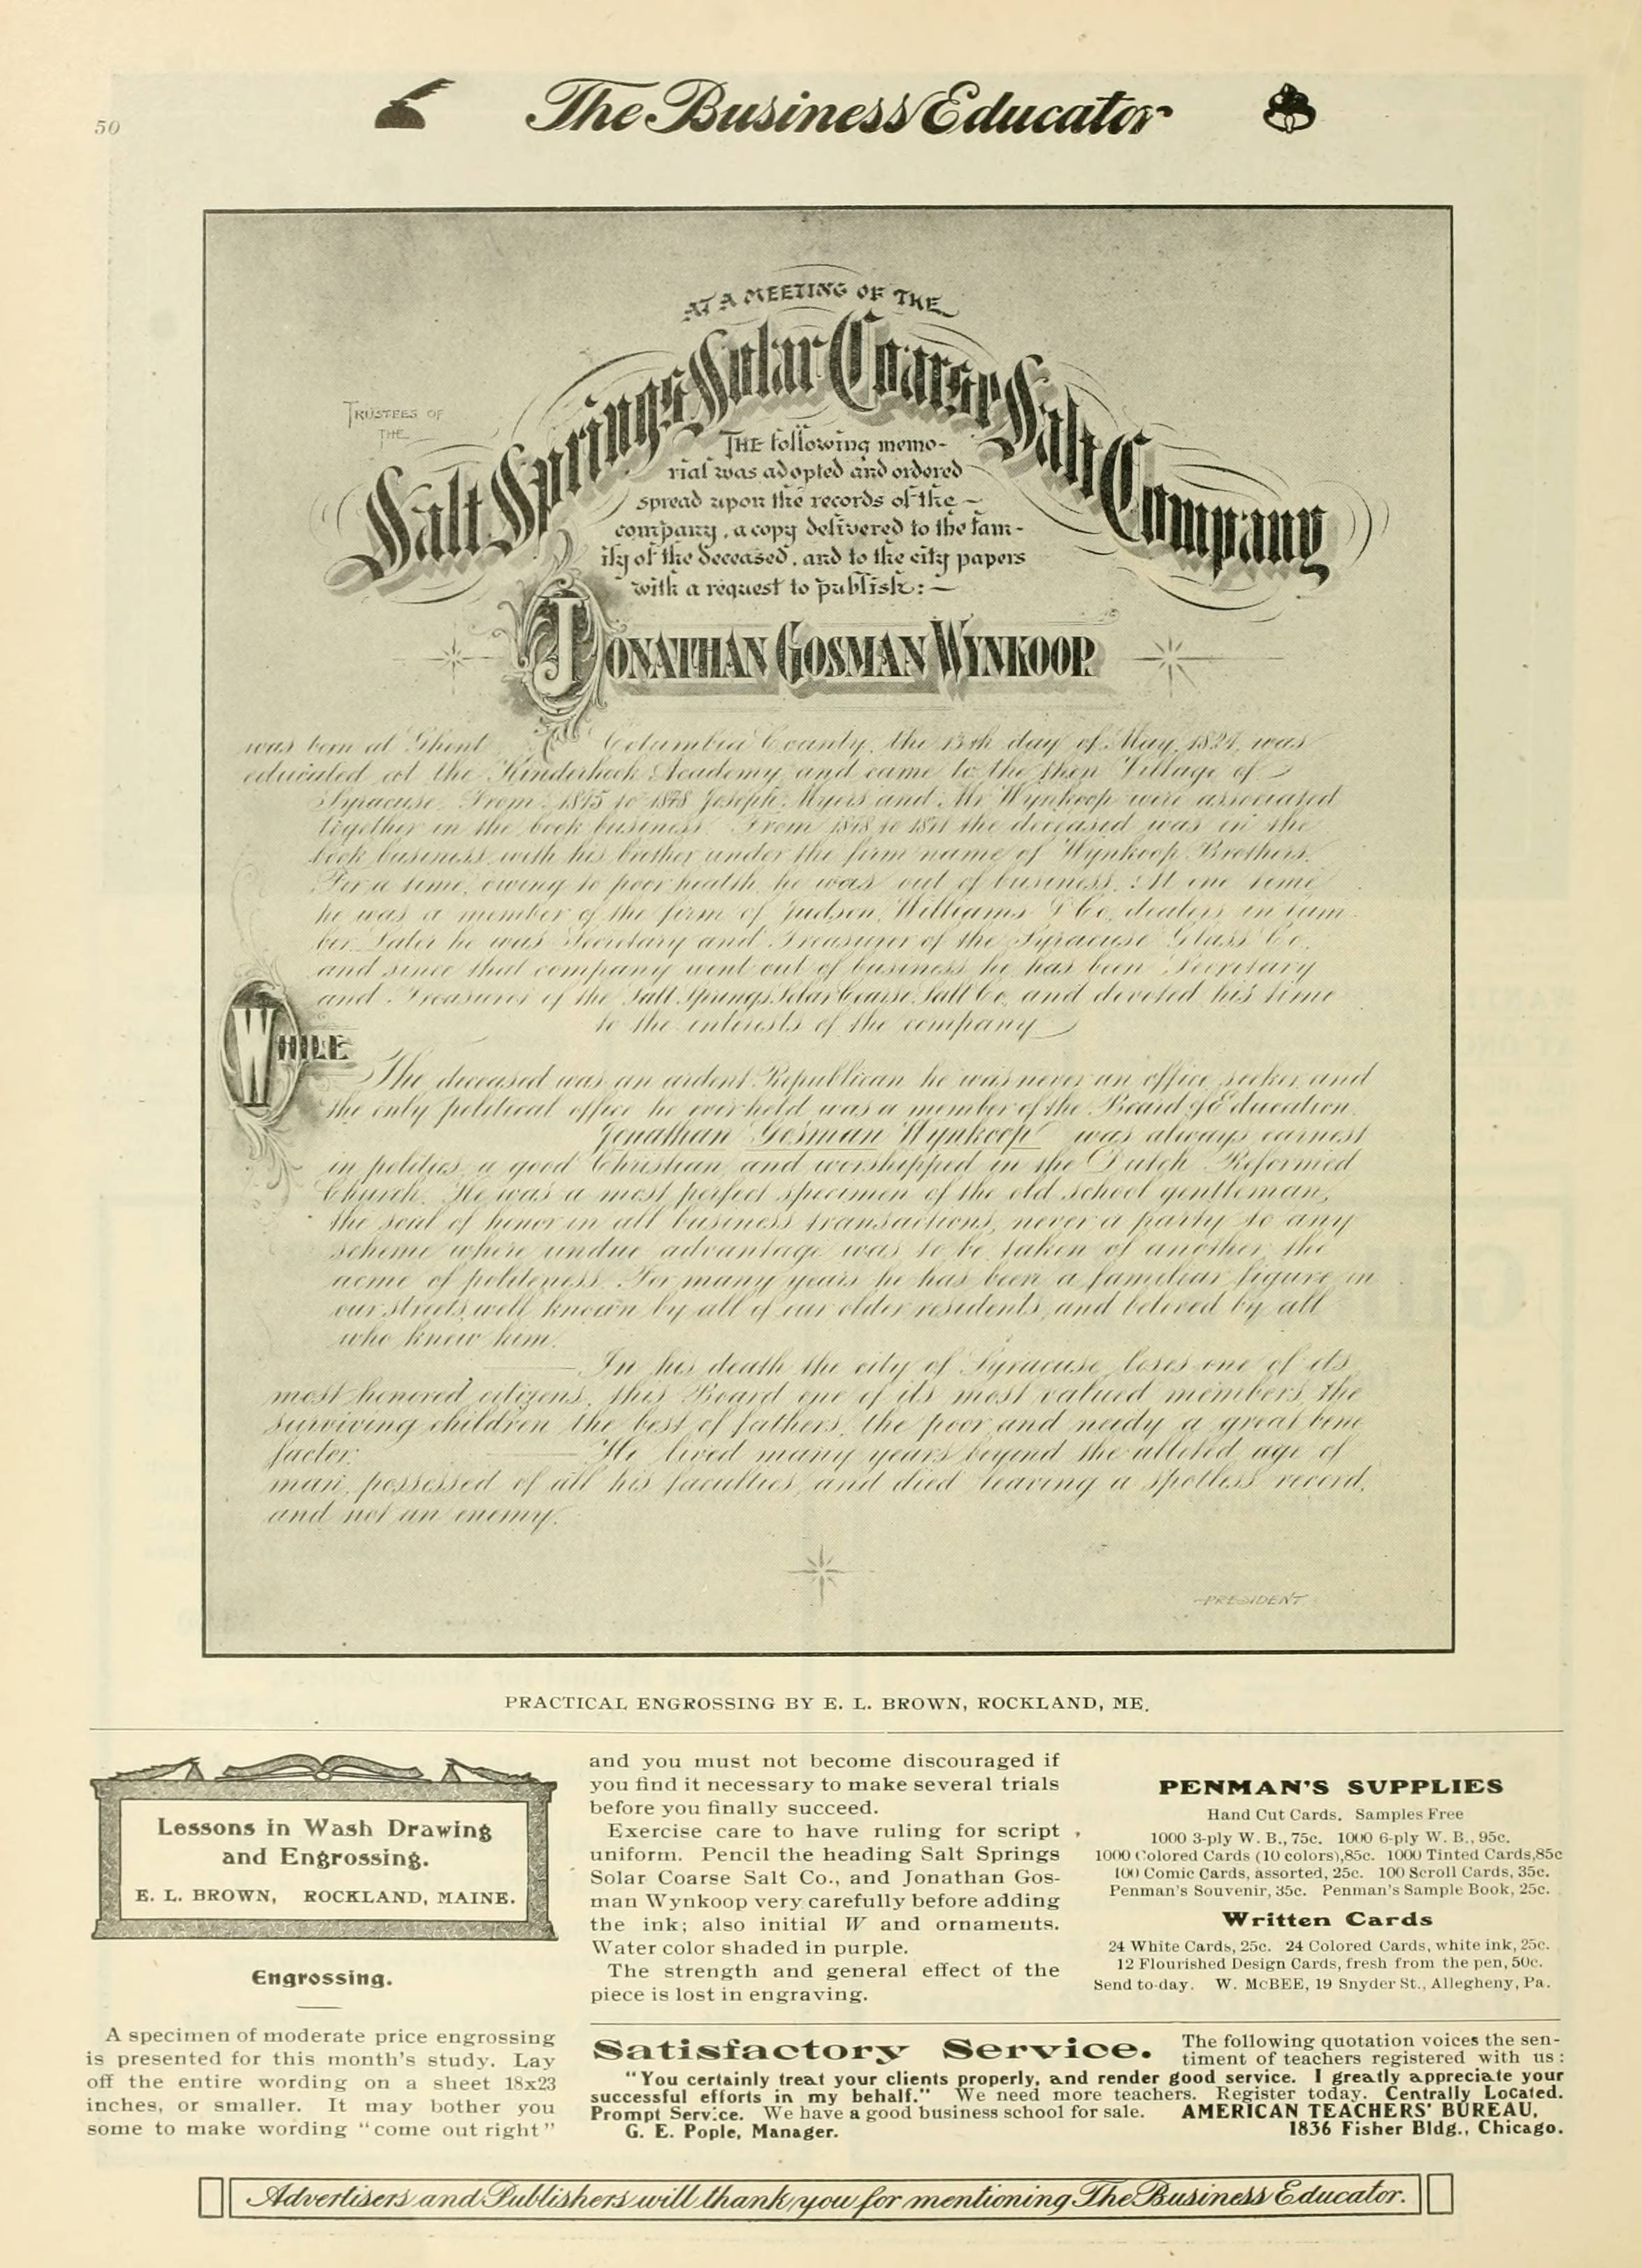 50
The Business Educator
AT A MEETING OF THE
TRUSTEES OF
THE
Salt Springs Solar Coarse Salt Company
THE following memo-
rial was adopted and ordered
spread upon the records of the
company, a copy delivered to the fam-
ily of the deceased, and to the city papers
with a request to publish:—
JONATHAN GOSMAN WYNKOOP.
was born at Ghent Columbia County, the 13th day of May, 1824, was
educated at the Kinderhook Academy, and came to the then Village of
Syracuse. From to Joseph Myers and Mr Wynkoop were associated
together in the book business. From to the deceased was in the
book business with his brother under the firm name of Wynkoop Brothers.
For a time, owing to poor health, he was out of business. At one time
he was a member of the firm of Judson, Williams & Co, dealers in lum
ber. Later he was Secretary and Treasurer of the Syracuse Glass Co.
and since that company went out of business he has been Secretary
and Treasurer of the Salt Springs Solar Coarse Salt Co, and devoted his time
to the interests of the company
WHILE
The deceased was an ardent Republican he was never an office seeker, and
the only political office he ever held was a member of the Board of Education.
Jonathan Gosman Wynkoop was always earnest
in politics, a good Christian, and worshipped in the Dutch Reformed
Church. He was a most perfect specimen of the old school gentleman,
the soul of honor in all business transactions, never a party to any
scheme where undue advantage was to be taken of another, the
acme of politeness. For many years he has been a familiar figure in
our streets, well known by all of our older residents, and beloved by all
who knew him.
In his death the city of Syracuse loses one of its
most honored citizens, this Board one of its most valued members, the
surviving children the best of fathers, the poor and needy a great bene
factor. He lived many years beyond the allotted age of
man, possessed of all his faculties, and died leaving a spotless record,
and not an enemy.
PRESIDENT
PRACTICAL ENGROSSING BY E. L. BROWN, ROCKLAND, ME.
Lessons in Wash Drawing
and Engrossing.
E. L. BROWN, ROCKLAND, MAINE.
Engrossing.
A specimen of moderate price engrossing
is presented for this month's study. Lay
off the entire wording on a sheet 18x23
inches, or smaller. It may bother you
some to make wording "come out right"
and you must not become discouraged if
you find it necessary to make several trials
before you finally succeed.
Exercise care to have ruling for script
uniform. Pencil the heading Salt Springs
Solar Coarse Salt Co., and Jonathan Gos-
man Wynkoop very carefully before adding
the ink; also initial W and ornaments.
Water color shaded in purple.
The strength and general effect of the
piece is lost in engraving.
PENMAN'S SUPPLIES
Hand Cut Cards. Samples Free
1000 3-ply W. B., 75c. 1000 6-ply W. B., 95c.
1000 Colored Cards (10 colors),85c. 1000 Tinted Cards,85c
100 Comic Cards, assorted, 25c. 100 Scroll Cards, 35c.
Penman's Souvenir, 35c. Penman's Sample Book, 25c.
Written Cards
24 White Cards, 25c. 24 Colored Cards, white ink, 25c.
12 Flourished Design Cards, fresh from the pen, 50c.
Send to-day. W. McBEE, 19 Snyder St., Allegheny, Pa.
Satisfactory Service. The following quotation voices the sen-
timent of teachers registered with us:
"You certainly treat your clients properly, and render good service. I greatly appreciate your
successful efforts in my behalf." We need more teachers. Register today. Centrally Located.
Prompt Service. We have a good business school for sale. AMERICAN TEACHERS' BUREAU,
G. E. Pople, Manager. 1836 Fisher Bldg., Chicago.
Advertisers and Publishers will thank you for mentioning The Business Educator.